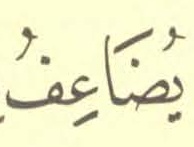 يُضَاعِفُ